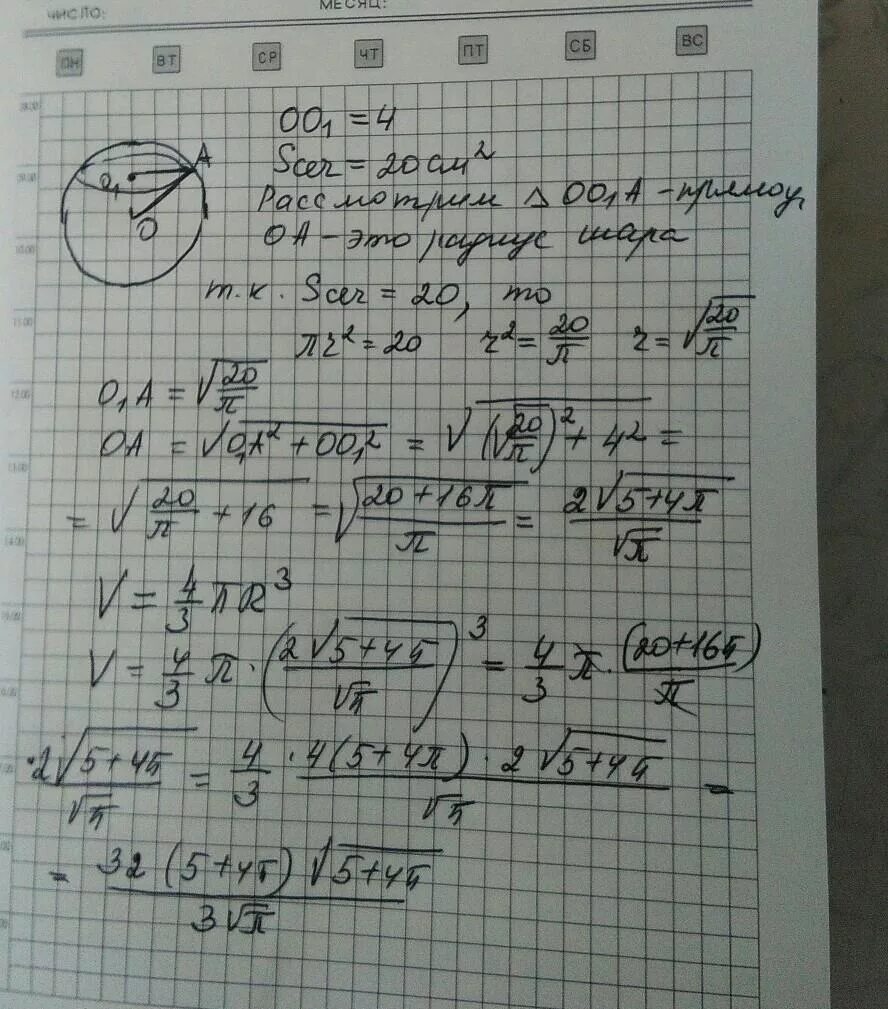 ЧИСЛО: МЕСЯЦ:
ПН ВТ СР ЧТ ПТ СБ ВС
08.00
09.00
10.00
11.00
12.00
13.00
14.00
A
O₁
O
OO₁ = 4
Sсеч = 20 см²
Рассмотрим △ OO₁A - прямоуг
OA - это радиус шара
т.к. Sсеч = 20, то
πr² = 20 r² = 20/π r = √(20/π)
O₁A = √(20/π)
OA = √(O₁A² + OO₁²) = √((√(20/π))² + 4²) =
= √(20/π + 16) = √((20 + 16π)/π) = 2√(5+4π)/√π
V = 4/3 πR³
V = 4/3 π · (2√(5+4π)/√π)³ = 4/3 π · (20+16π)/π
· 2√(5+4π)/√π = 4/3 · 4(5+4π) · 2√(5+4π)/√π =
= 32(5+4π)√(5+4π)/3√π